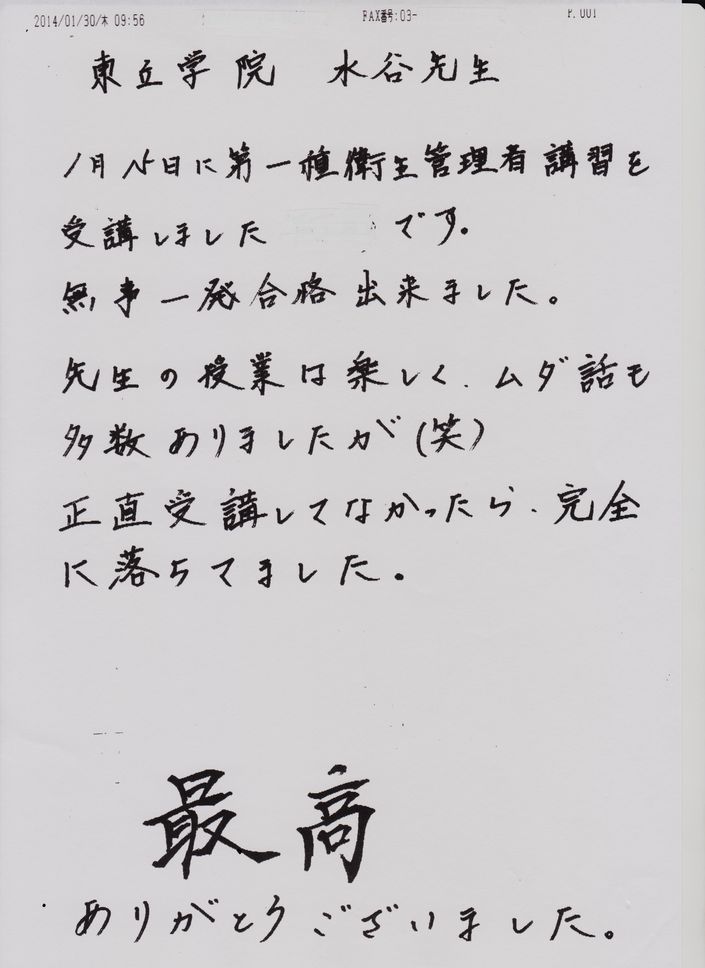 2014/01/30/木 09:56 FAX番号:03- P.001
東丘学院 水谷先生
1月15日に第一種衛生管理者講習を
受講しました です。
無事一発合格出来ました。
先生の授業は楽しく、ムダ話も
多数ありましたが(笑)
正直受講してなかったら、完全
に落ちてました。
最高
ありがとうございました。